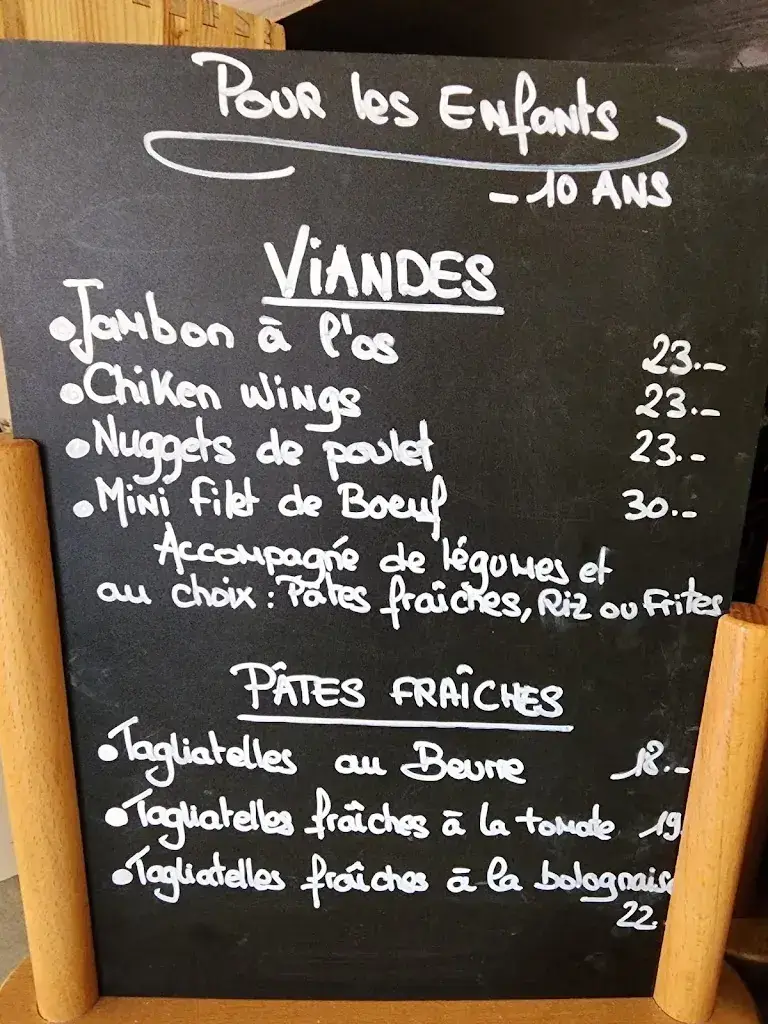 Pour les Enfants
- 10 ANS
VIANDES
• Jambon à l'os 23.-
• Chiken Wings 23.-
• Nuggets de poulet 23.-
• Mini filet de Boeuf 30.-
Accompagné de légumes et
au choix : Pâtes fraîches, Riz ou Frites
PÂTES FRAÎCHES
• Tagliatelles au Beurre 18.-
• Tagliatelles fraîches à la tomate 19
• Tagliatelles fraîches à la bolognaise
22.